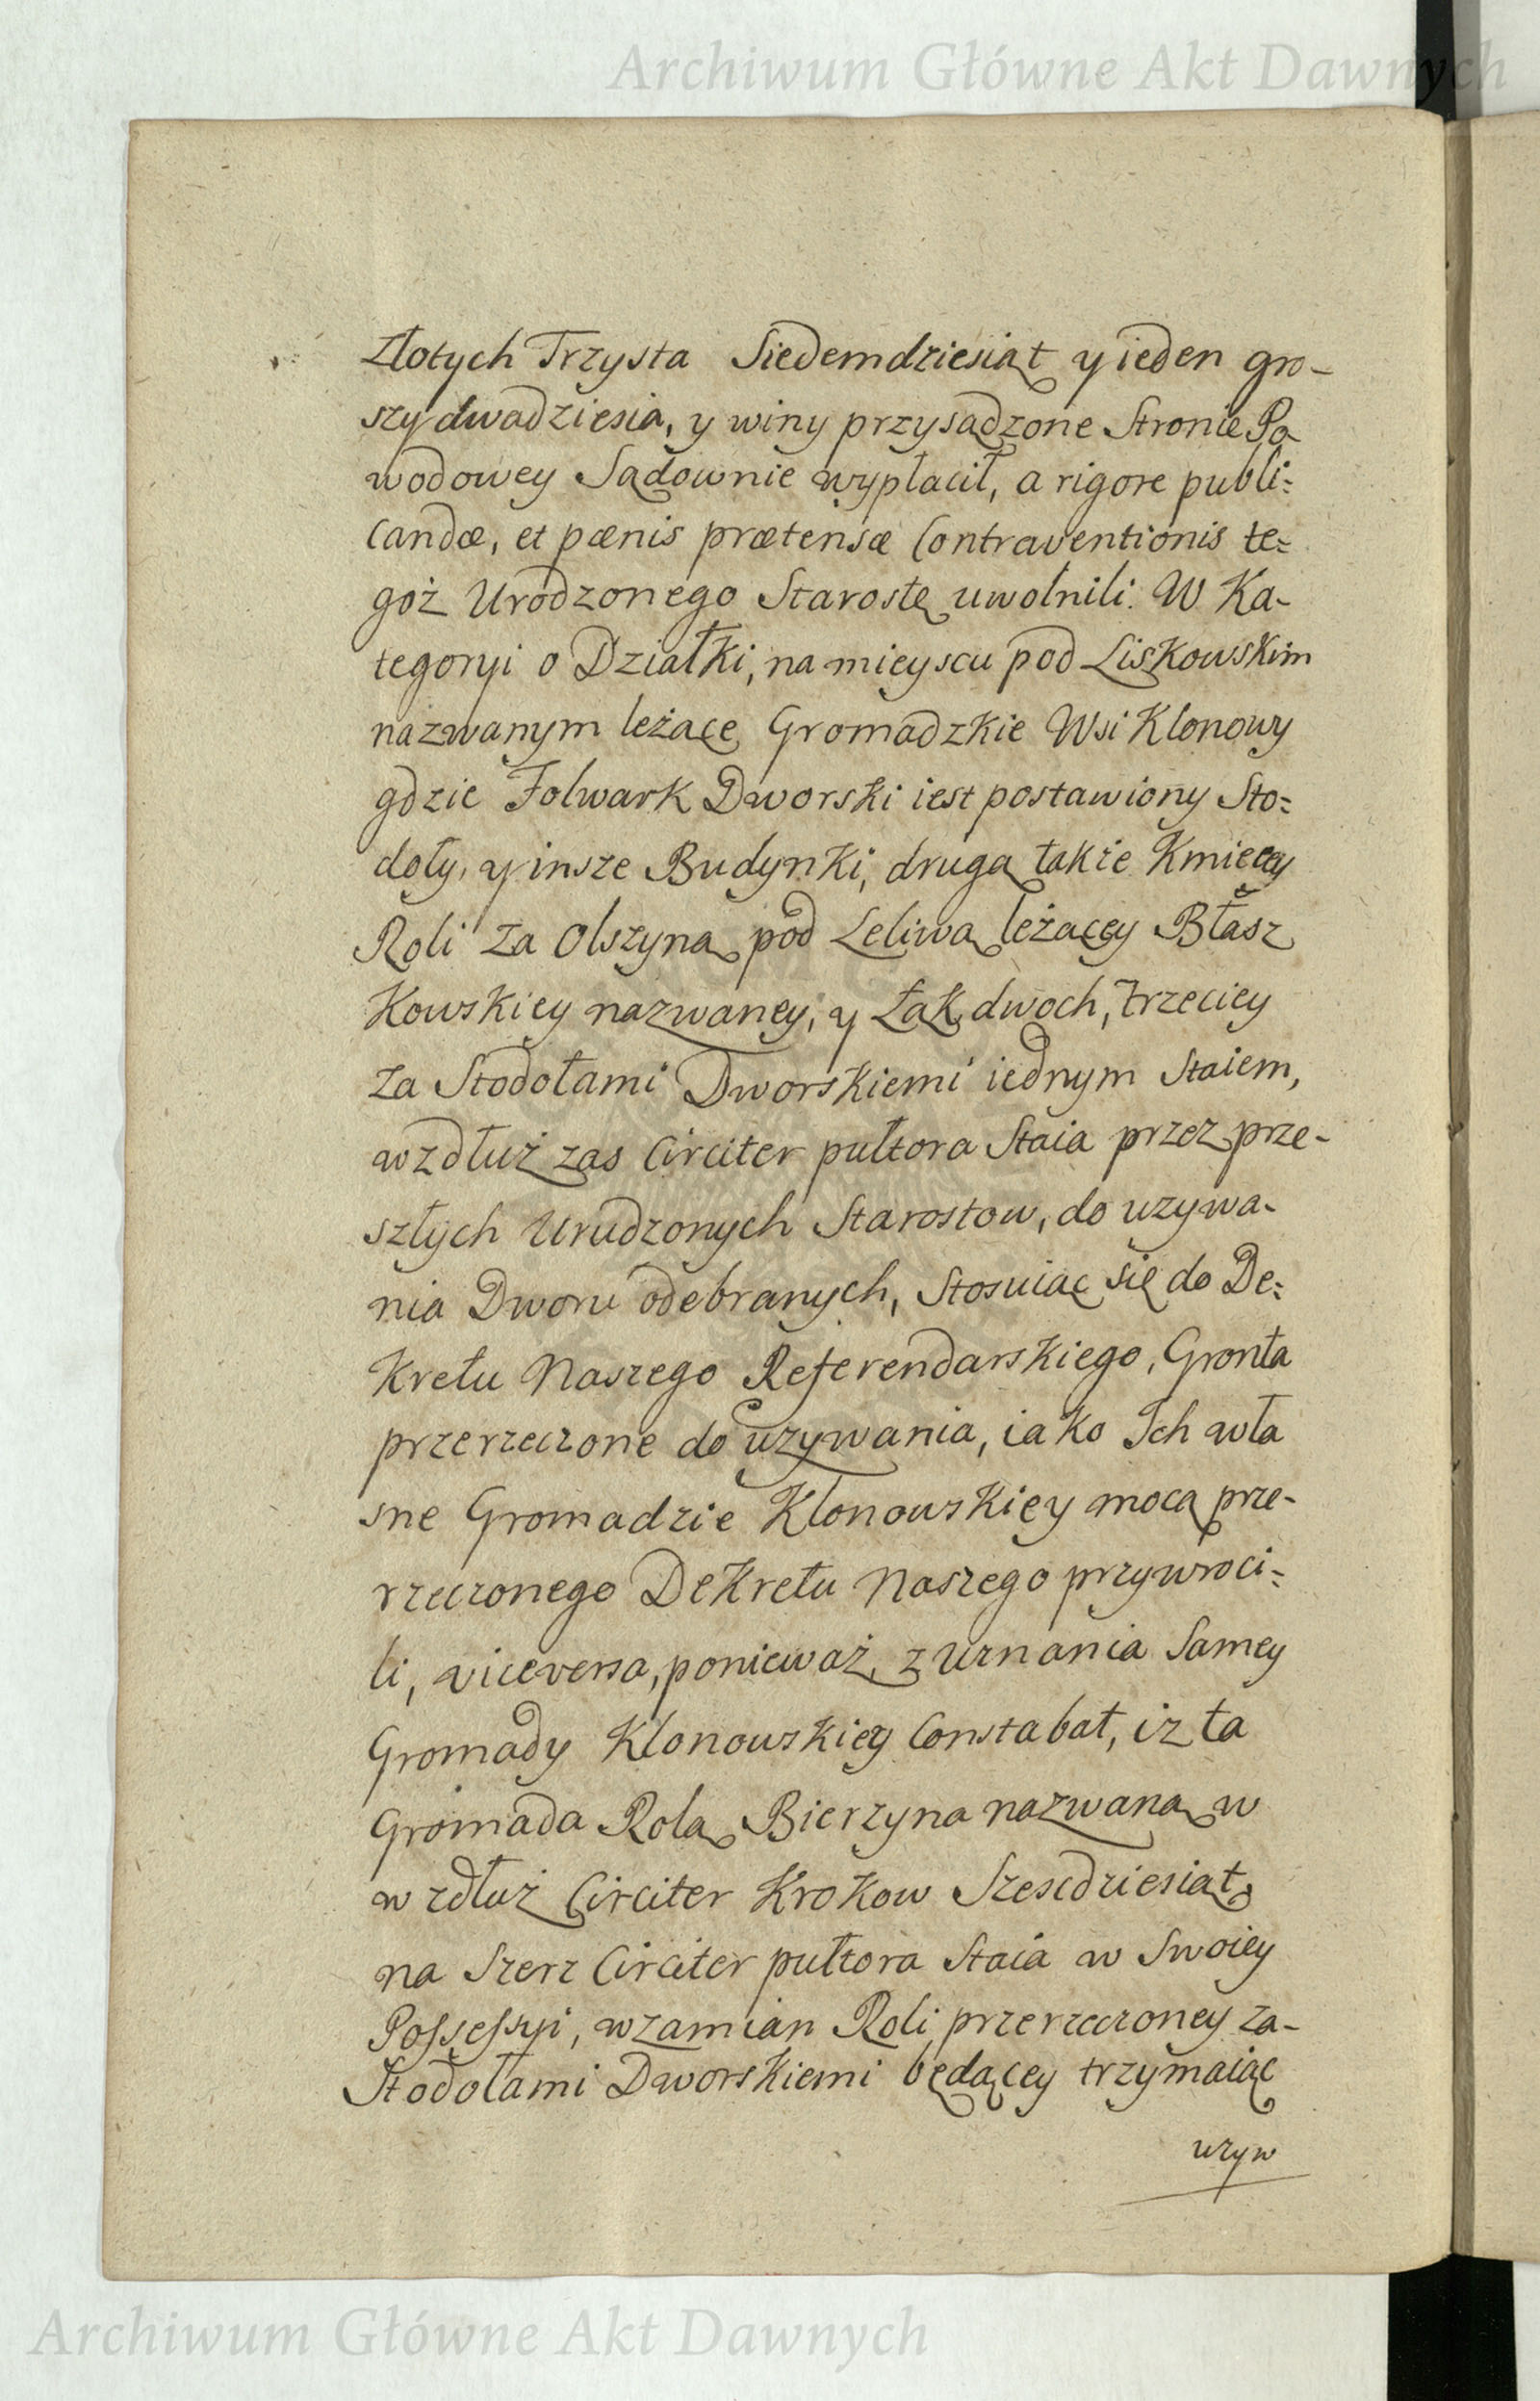 Archiwum Główne Akt Dawnych
Złotych Trzysta Siedemdziesiąt y ieden gro-
szy dwadziescia, y winy przysądzone Stronie Po
wodowey Sądownie wypłacił, a rigore publi=
candæ, et pœnis prætensæ Contraventionis te=
goż Urodzonego Starostę uwolnili. W Ka-
tegoryi o Działki, na mieyscu pod Liskowskim
nazwanym leżące Gromadzkie Wsi Klonowy
gdzie Folwark Dworski iest postawiony Sto=
doły, y insze Budynki, drugą także Kmiecey
Roli za Olszyną pod Leliwą leżącey Błasz
Kowskiey nazwaney, y Łąk dwoch, trzeciey
za Stodołami Dworskiemi iednym Staiem,
wzdłuż zas Circiter pułtora Staia przez prze-
szłych Urudzonych Starostow, do uzywa-
nia Dworu odebranych, Stosuiąc się do De=
Kretu Naszego Referendarskiego, Gronta
przerzeczone do uzywania, iako Ich wła
sne Gromadzie Klonowskiey mocą prze-
rzeczonego DeKretu Naszego przywroci=
li, viceversa, ponieważ z Uznania Samey
Gromady Klonowskiey Constabat, iz ta
Gromada Rolą Bierzyna nazwaną w
wzdłuż Circiter Krokow Szescdziesiąt
na Szerz Circiter pułtora Staia w Swoiey
Possessyi, wzamian Roli przerzeczoney za-
Stodołami Dworskiemi będącey trzymaiąc
uzyw
Archiwum Główne Akt Dawnych